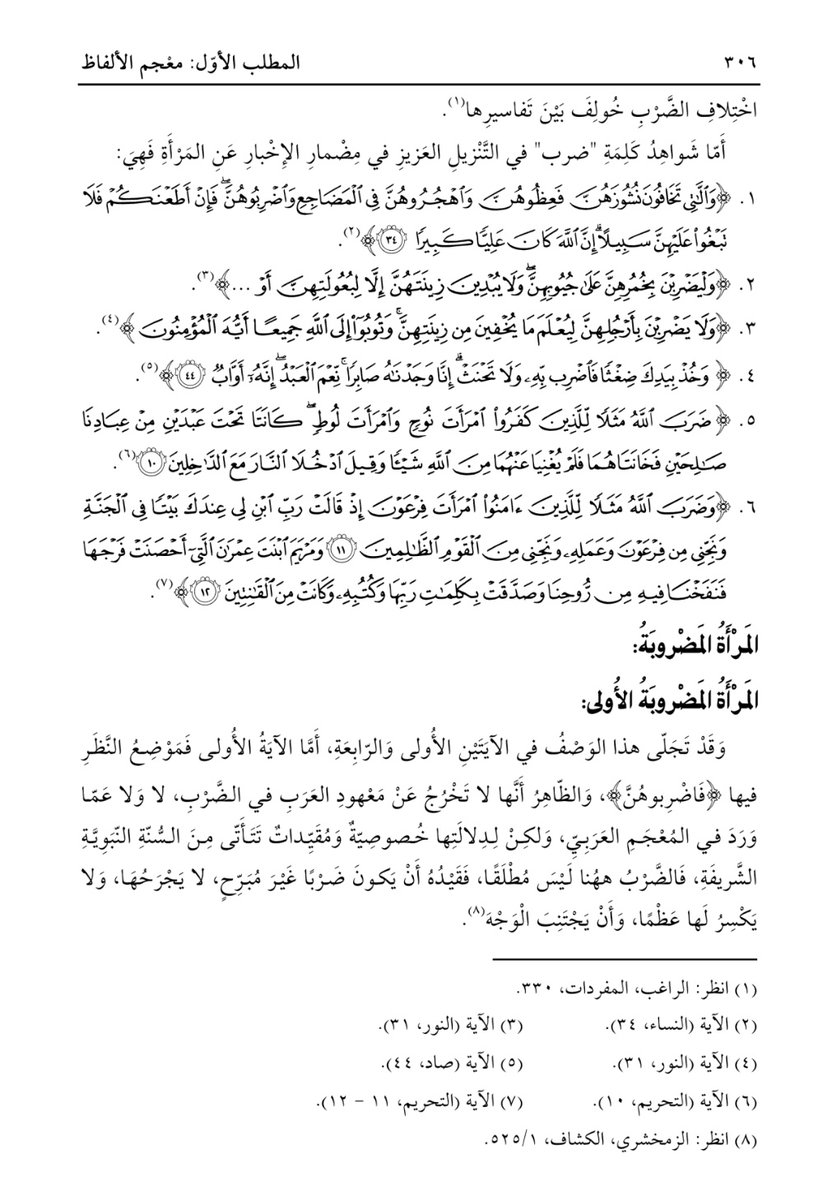 ٣٠٦ المطلب الأوّل: معْجم الألفاظ
اخْتِلافِ الضَّرْبِ خُولِفَ بَيْنَ تَفاسيرِها(١).
أَمّا شَواهِدُ كَلِمَةِ "ضرب" في التَّنْزيلِ العَزيزِ في مِضْمارِ الإِخْبارِ عَنِ المَرْأَةِ فَهِيَ:
١. ﴿وَٱلَّٰتِي تَخَافُونَ نُشُوزَهُنَّ فَعِظُوهُنَّ وَٱهْجُرُوهُنَّ فِي ٱلْمَضَاجِعِ وَٱضْرِبُوهُنَّۖ فَإِنْ أَطَعْنَكُمْ فَلَا
تَبْغُوا۟ عَلَيْهِنَّ سَبِيلًاۗ إِنَّ ٱللَّهَ كَانَ عَلِيًّا كَبِيرًا ۝٣٤﴾(٢).
٢. ﴿وَلْيَضْرِبْنَ بِخُمُرِهِنَّ عَلَىٰ جُيُوبِهِنَّۖ وَلَا يُبْدِينَ زِينَتَهُنَّ إِلَّا لِبُعُولَتِهِنَّ أَوْ ...﴾(٣).
٣. ﴿وَلَا يَضْرِبْنَ بِأَرْجُلِهِنَّ لِيُعْلَمَ مَا يُخْفِينَ مِن زِينَتِهِنَّۚ وَتُوبُوٓا۟ إِلَى ٱللَّهِ جَمِيعًا أَيُّهَ ٱلْمُؤْمِنُونَ﴾(٤).
٤. ﴿وَخُذْ بِيَدِكَ ضِغْثًا فَٱضْرِب بِّهِۦ وَلَا تَحْنَثْۗ إِنَّا وَجَدْنَٰهُ صَابِرًاۚ نِّعْمَ ٱلْعَبْدُۖ إِنَّهُۥٓ أَوَّابٌ ۝٤٤﴾(٥).
٥. ﴿ضَرَبَ ٱللَّهُ مَثَلًا لِّلَّذِينَ كَفَرُوا۟ ٱمْرَأَتَ نُوحٍ وَٱمْرَأَتَ لُوطٍۖ كَانَتَا تَحْتَ عَبْدَيْنِ مِنْ عِبَادِنَا
صَٰلِحَيْنِ فَخَانَتَاهُمَا فَلَمْ يُغْنِيَا عَنْهُمَا مِنَ ٱللَّهِ شَيْـًٔا وَقِيلَ ٱدْخُلَا ٱلنَّارَ مَعَ ٱلدَّٰخِلِينَ ۝١٠﴾(٦).
٦. ﴿وَضَرَبَ ٱللَّهُ مَثَلًا لِّلَّذِينَ ءَامَنُوا۟ ٱمْرَأَتَ فِرْعَوْنَ إِذْ قَالَتْ رَبِّ ٱبْنِ لِي عِندَكَ بَيْتًا فِي ٱلْجَنَّةِ
وَنَجِّنِي مِن فِرْعَوْنَ وَعَمَلِهِۦ وَنَجِّنِي مِنَ ٱلْقَوْمِ ٱلظَّٰلِمِينَ ۝١١ وَمَرْيَمَ ٱبْنَتَ عِمْرَٰنَ ٱلَّتِيٓ أَحْصَنَتْ فَرْجَهَا
فَنَفَخْنَا فِيهِ مِن رُّوحِنَا وَصَدَّقَتْ بِكَلِمَٰتِ رَبِّهَا وَكُتُبِهِۦ وَكَانَتْ مِنَ ٱلْقَٰنِتِينَ ۝١٢﴾(٧).
المَرْأَةُ المَضْروبَةُ:
المَرْأَةُ المَضْروبَةُ الأُولى:
وَقَدْ تَجَلّى هذا الوَصْفُ في الآيَتَيْنِ الأُولى وَالرّابِعَةِ، أَمَّا الآيَةُ الأُولى فَمَوْضِعُ النَّظَرِ
فيها ﴿فَاضْرِبوهُنَّ﴾، وَالظّاهِرُ أَنَّها لا تَخْرُجُ عَنْ مَعْهودِ العَرَبِ في الضَّرْبِ، لا وَلا عَمّا
وَرَدَ في المُعْجَمِ العَرَبِيِّ، وَلكِنْ لِدِلالَتِها خُصوصِيَّةٌ وَمُقَيِّداتٌ تَتَأَتّى مِنَ السُّنّةِ النّبَوِيَّةِ
الشَّريفَةِ، فَالضَّرْبُ ههُنا لَيْسَ مُطْلَقًا، فَقَيْدُهُ أَنْ يَكونَ ضَرْبًا غَيْرَ مُبَرِّحٍ، لا يَجْرَحُهَا، وَلا
يَكْسِرُ لَها عَظْمًا، وَأَنْ يَجْتَنِبَ الْوَجْهَ(٨).
(١) انظر: الراغب، المفردات، ٣٣٠.
(٢) الآية (النساء، ٣٤). (٣) الآية (النور، ٣١).
(٤) الآية (النور، ٣١). (٥) الآية (صاد، ٤٤).
(٦) الآية (التحريم، ١٠). (٧) الآية (التحريم، ١١ - ١٢).
(٨) انظر: الزمخشري، الكشاف، ٥٢٥/١.